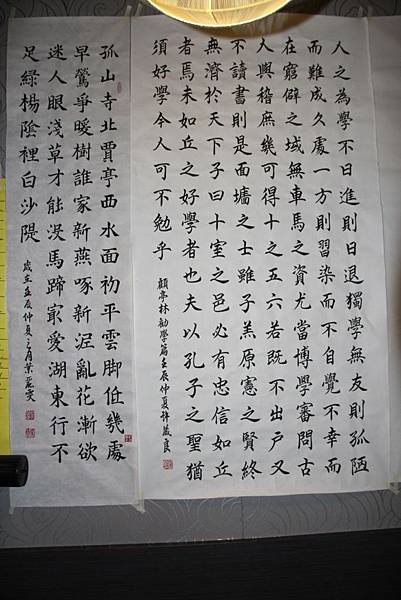 人之為學不日進則日退獨學無友則孤陋
而難成久處一方則習染而不自覺不幸而
在窮僻之域無車馬之資尤當博學審問古
人與稽庶幾可得十之五六若既不出戶又
不讀書則是面墻之士雖子羔原憲之賢終
無濟於天下子曰十室之邑必有忠信如丘
者焉未如丘之好學者也夫以孔子之聖猶
須好學今人可不勉乎
顧亭林勸學篇壬辰仲夏許良
孤山寺北賈亭西水面初平雲脚低幾處
早鶯爭暖樹誰家新燕啄新泥亂花漸欲
迷人眼淺草才能沒馬蹄最愛湖東行不
足綠楊陰裡白沙隄
歲次壬辰仲夏之月葉